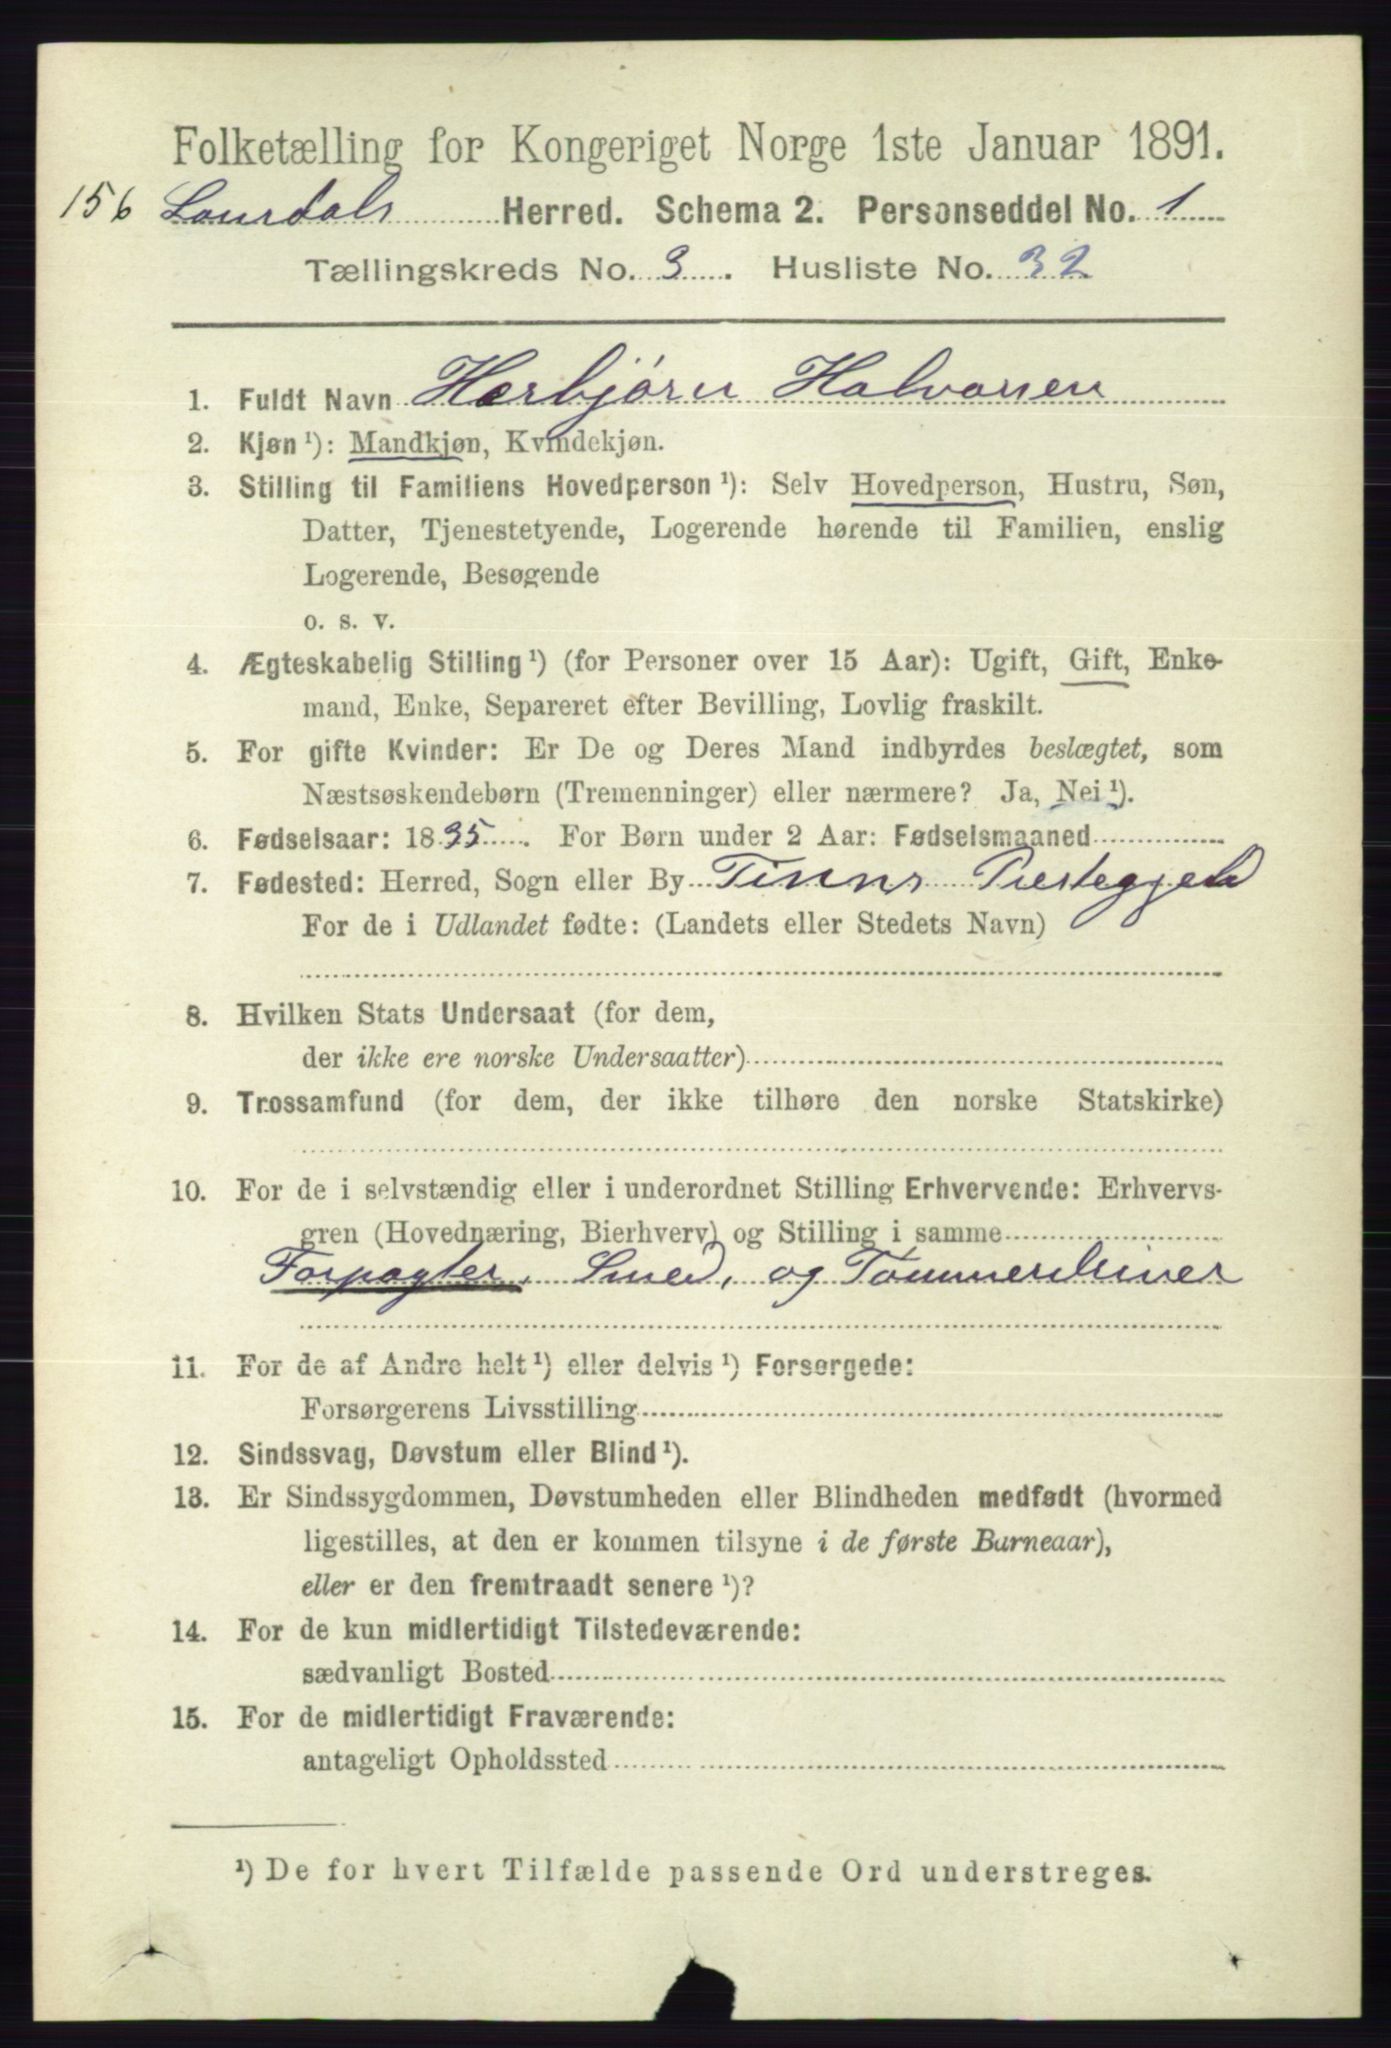 Folketælling for Kongeriget Norge 1ste Januar 1891.
156 Laurdals Herred. Schema 2. Personseddel No. 1
Tællingskreds No. 3. Husliste No. 32
1. Fuldt Navn Herbjörn Halvorsen
2. Kjøn ¹): Mandkjøn, Kvindekjøn.
3. Stilling til Familiens Hovedperson ¹): Selv Hovedperson, Hustru, Søn,
Datter, Tjenestetyende, Logerende hørende til Familien, enslig
Logerende, Besøgende
o. s. v.
4. Ægteskabelig Stilling ¹) (for Personer over 15 Aar): Ugift, Gift, Enke-
mand, Enke, Separeret efter Bevilling, Lovlig fraskilt.
5. For gifte Kvinder: Er De og Deres Mand indbyrdes beslægtet, som
Næstsøskendebørn (Tremenninger) eller nærmere? Ja, Nei ¹).
6. Fødselsaar: 1835. For Børn under 2 Aar: Fødselsmaaned
7. Fødested: Herred, Sogn eller By Tinns Prestegjeld
For de i Udlandet fødte: (Landets eller Stedets Navn)
8. Hvilken Stats Undersaat (for dem,
der ikke ere norske Undersaatter)
9. Trossamfund (for dem, der ikke tilhøre den norske Statskirke)
10. For de i selvstændig eller i underordnet Stilling Erhvervende: Erhvervs-
gren (Hovednæring, Bierhverv) og Stilling i samme
Forpagter, Smed, og Tømmerdriver
11. For de af Andre helt ¹) eller delvis ¹) Forsørgede:
Forsørgerens Livsstilling
12. Sindssvag, Døvstum eller Blind ¹).
13. Er Sindssygdommen, Døvstumheden eller Blindheden medfødt (hvormed
ligestilles, at den er kommen tilsyne i de første Barneaar),
eller er den fremtraadt senere ¹)?
14. For de kun midlertidigt Tilstedeværende:
sædvanligt Bosted
15. For de midlertidigt Fraværende:
antageligt Opholdssted
¹) De for hvert Tilfælde passende Ord understreges.